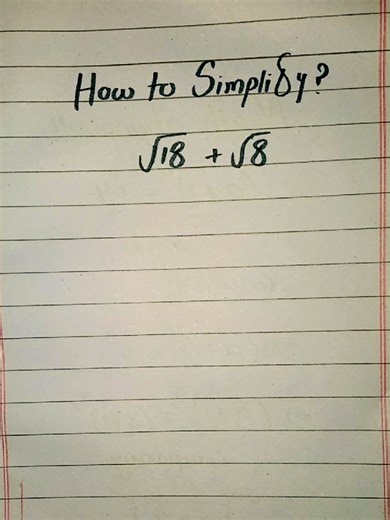 How to Simplify?
√18 + √8